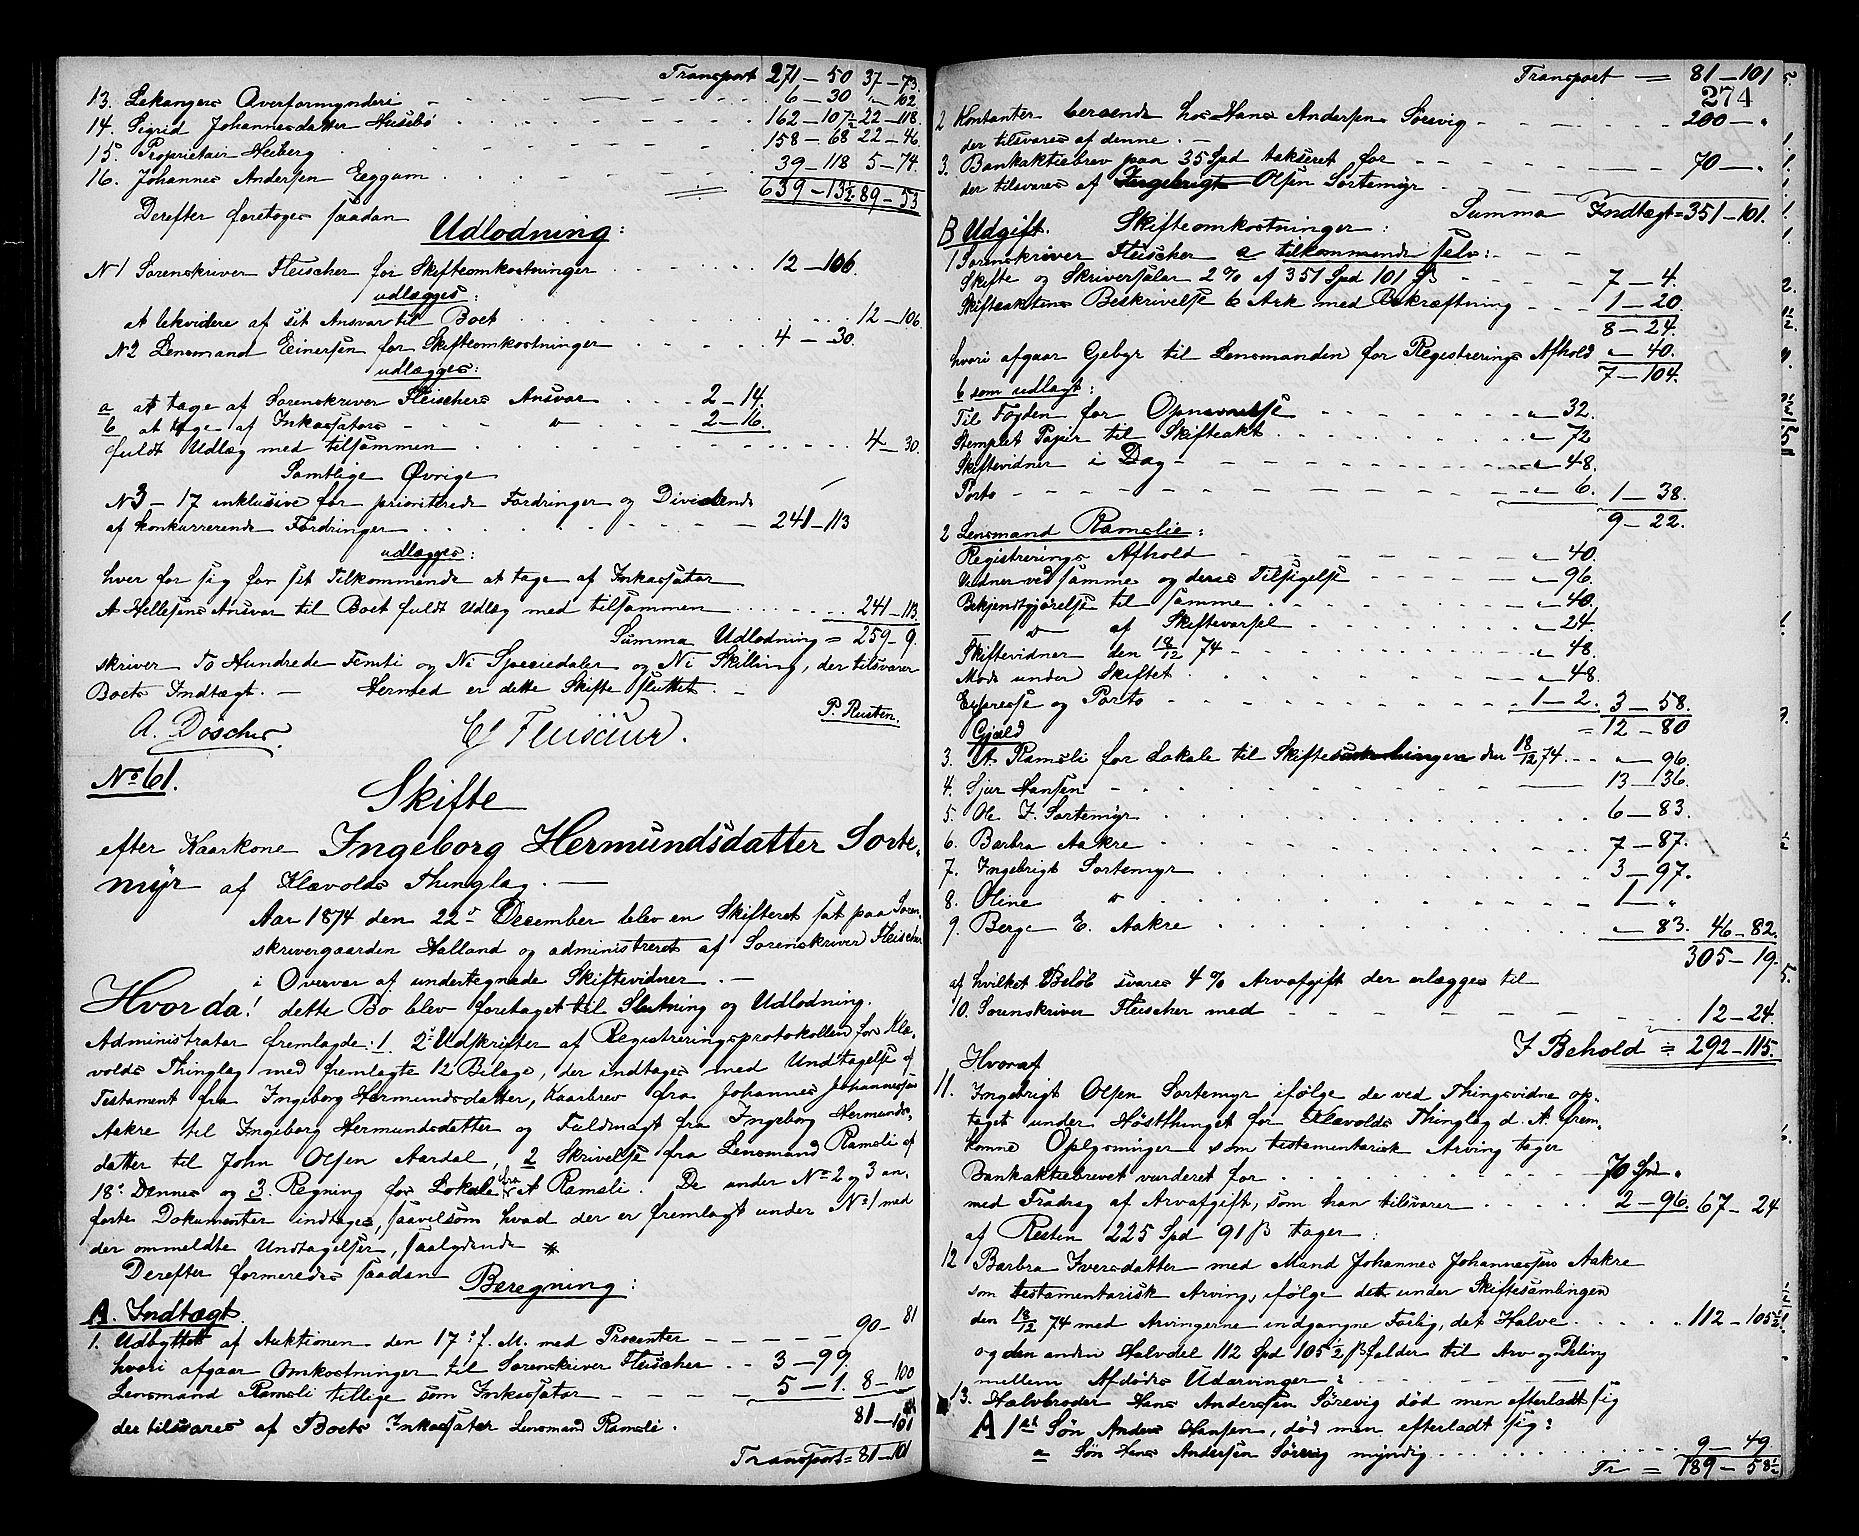 Transport 271 – 50 37 – 73.
13. Lekangers Overformynderi 6 – 30 " – 102.
14. Sigrid Johannesdatter Husebö 162 – 107½ 22 – 118.
15. Proprietair Heiberg 158 – 68 22 – 46.
16. Johannes Andersen Eggum 39 – 118 5 – 74.
= 639 – 13½ 89 – 53
Derefter foretoges saadan
Udlodning:
No 1 Sorenskriver Fleischer for Skifteomkostninger 12 – 106.
udlægges:
at lekvidere af sit Ansvar til Boet 12 – 106.
No 2 Lensmand Einersen for Skifteomkostninger 4 – 30.
udlægges:
a at tage af Sorenskriver Fleischers Ansvar 2 – 14.
b at tage af Inkassators " 2 – 16.
fuldt Udlæg med tilsammen 4 – 30.
Samtlige Øvrige
No 3 – 17 inklusive for prioriterede Fordringer og Dividende
af konkurrerende Fordringer 241 – 113
udlægges:
hver for sig for sit Tilkommende at tage af Inkassator
A Hellesens Ansvar til Boet fuldt Udlæg med tilsammen 241 – 113.
Summa Udlodning = 259 – 9.
skriver To Hundrede Femti og Ni Speciedaler og Ni Skilling, der tilsvarer
Boets Indtægt. – Hermed er dette Skifte sluttet. –
A. Döscher. Fleischer. P. Rusten.
No 61.
Skifte
efter Kaarkone Ingeborg Hermundsdatter Sorte-
myr af Klævolds Thinglag. —
Aar 1874 den 22de December blev en Skifteret sat paa Soren-
skrivergaarden Halland og administreret af Sorenskriver Fleischer
i Overvær af undertegnede Skiftevidner. —
Hvor da! dette Bo blev foretaget til Slutning og Udlodning.
Administrator fremlagde: 1. 2de Udskrifter af Registreringsprotokollen for Klæ-
volds Thinglag med fremlagte 12 Bilage, der indtages med Undtagelse af
Testament fra Ingeborg Hermundsdatter, Kaarbrev fra Johannes Johannessen
Aakre til Ingeborg Hermundsdatter og Fuldmagt fra Ingeborg Hermunds-
datter til John Olsen Aardal, 2 Skrivelse fra Lensmand Ramsli af
18de Dennes og 3. Regning for Lokale fra A Ramsli. De under No 2 og 3 an-
førte Dokumenter indtages, saavelsom hvad der er fremlagt under No 1 med
der ommeldte Undtagelser, saalydende *
Derefter formeredes saadan Beregning:
A. Indtægt.
1. Udbyttet af Auktionen den 17de f. M. med Procenter 90 – 81
hvori afgaar Omkostninger til Sorenskriver Fleischer 3 – 99.
Lensmand Ramsli tillige som Inkassator 5 – 1. 8 – 100
der tilsvares af Boets Inkassator Lensmand Ramsli. 81 – 101
Transport = 81 – 101
Transport = 81 – 101
274
2 Kontanter beroende hos Hans Andersen Sörevig 200 – "
der tilsvares af denne. –
3. Bankaktiebrev paa 35 Spd takseret for 70 – "
der tilsvares af Ingebrigt Olsen Sortemyr
Summa Indtægt = 351 – 101.
B Udgift. Skifteomkostninger:
1 Sorenskriver Fleischer a tilkommende selv:
Skifte og Skriversaler 2 % af 351 Spd 101 ß 7 – 4.
Skifteaktens Beskrivelse 6 Ark med Bekræftning 1 – 20.
8 – 24.
hvori afgaar Gebyr til Lensmanden for Registrerings Afhold " – 40.
7 – 104.
b som udlagt:
Til Fogden for Opnævnelse " 32.
Stemplet Papir til Skifteakt " 72
Skiftevidner i Dag " 48.
Porto " 6. 1 – 38.
9 – 22.
2 Lensmand Ramslie:
Registrerings Afhold " 40.
Vidner ved samme og deres Tilsigelse " 96.
Bekjendtgjörelse til samme " 40.
" af Skiftevarsel " 24.
Skiftevidner den 18/12 74 " 48.
Möde under Skiftet " 48.
Expresse og Porto 1 – 2. 3 – 58.
Gjæld = 12 – 80
3. A. Ramsli for Lokale til Skiftesamlingen den 18/12 74 " – 96.
4. Sjur Hansen 13 – 36.
5. Ole I. Sortemyr 6 – 83.
6. Barbra Aakre 7 – 87.
7. Ingebrigt Sortemyr 3 – 97.
8. Oline " 1 – "
9. Berge E. Aakre " – 83. 46 – 82.
305 – 19.
af hvilket Belöb svares 4 % Arvafgift der erlægges til
10. Sorenskriver Fleischer med 12 – 24.
I Behold = 292 – 115.
Hvoraf
11. Ingebrigt Olsen Sortemyr ifölge de ved Thingsvidne op-
taget under Höstthinget for Klævolds Thinglag d. A. frem-
komne Oplysninger som testamentarisk Arving tager
Bankaktiebrevet vurderet for 70 Spd "
med Fradrag af Arvafgift, som han tilsvarer 2 – 96. 67 – 24
af Resten 225 Spd 91 ß tager:
12 Barbra Iversdatter med Mand Johannes Johannessen Aakre
som testamentarisk Arving, ifölge dets under Skiftesamlingen
den 18/12 74 med Arvingerne indgangne Forlig, det Halve 112 – 105½
og den anden Halvdel 112 Spd 105½ ß falder til Arv og Deling
mellem Afdödes Udarvinger:
13. Halvbroder Hans Andersen Sörevig död men efterladt sig
A 1st Søn Anders Hansen, död men efterladt sig:
a Søn Hans Andersen Sörevig myndig 9 – 49.
Tr = 189 – 58½